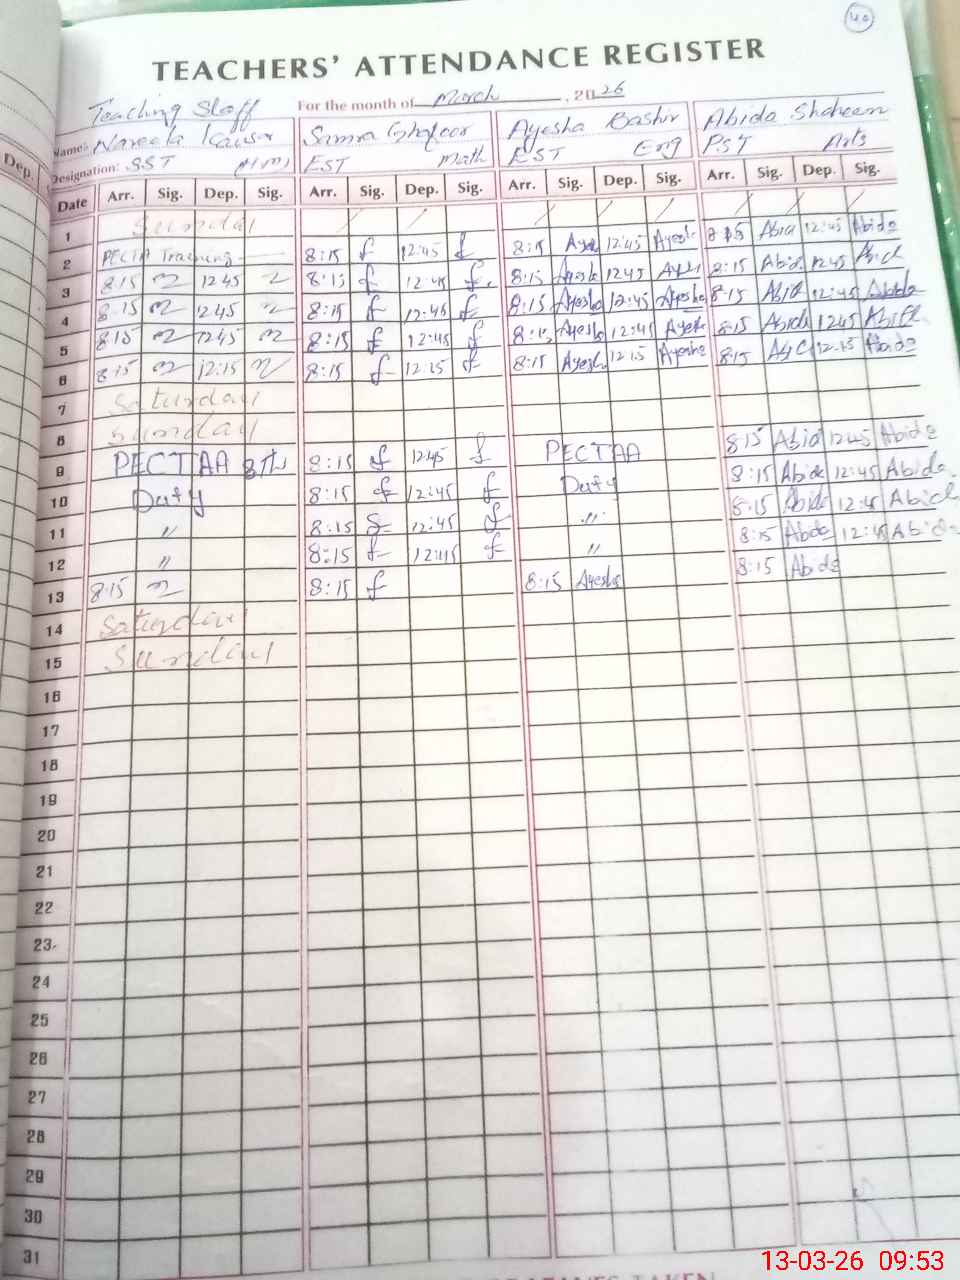 40
TEACHERS' ATTENDANCE REGISTER
Teaching Staff For the month of March, 2026
Name: Kausar Samra Ghafoor Ayesha Bashir Abida Shaheen
Designation: SST EST Math EST Eng PST Arts
Dep. Date Arr. Sig. Dep. Sig. Arr. Sig. Dep. Sig. Arr. Sig. Dep. Sig. Arr. Sig. Dep. Sig.
1 Sunday
2 PECTA Training 8:15 12:45 8:15 Aye 12:45 Ayesha 8:15 Abid 12:45 Abida
3 8:15 1245 8:15 12:45 8:15 Ayesh 1245 8:15 Abid 1245
4 8:15 1245 8:15 12:45 8:15 Ayesha 12:45 Ayesha 8:15 Abid 12:45 Abida
5 8:15 1245 8:15 12:45 8:15 Ayesha 12:45 Ayesh 8:15 Abida 1245
6 8:15 12:15 8:15 12:15 8:15 Ayesha 12:15 Ayesha 8:15 12:15 Abida
7 Saturday
8 Sunday
9 PECTAA 8th 8:15 1245 PECTAA 8:15 Abid 1245 Abida
10 Duty 8:15 12:45 Duty 8:15 Abida 12:45 Abida
11 " 8:15 12:45 " 8:15 Abida 12:45 Abid
12 " 8:15 12:45 " 8:15 Abida 12:45 Abida
13 8:15 8:15 8:15 Ayesha 8:15 Abida
14 Saturday
15 Sunday
16
17
18
19
20
21
22
23
24
25
26
27
28
29
30
31
13-03-26 09:53